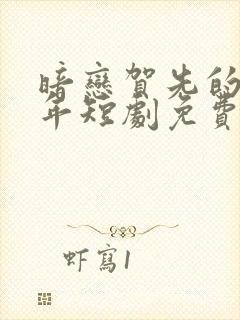 暗戀賀先的
年短劇免費
虾寫1